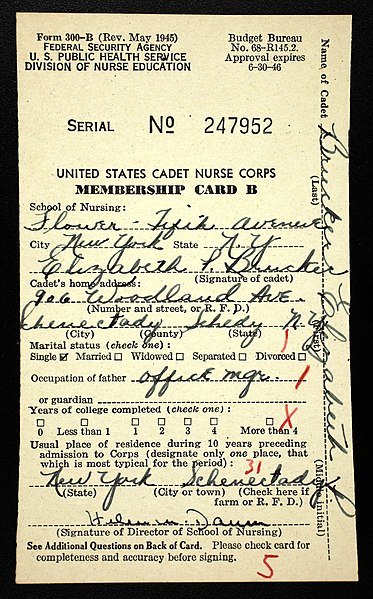 Form 300-B (Rev. May 1945)
FEDERAL SECURITY AGENCY
U. S. PUBLIC HEALTH SERVICE
DIVISION OF NURSE EDUCATION
Budget Bureau
No. 68-R145.2.
Approval expires
6-30-46
SERIAL No 247952
UNITED STATES CADET NURSE CORPS
MEMBERSHIP CARD B
School of Nursing:
Flower - Fifth Avenue
City New York State N.Y
Elizabeth P. Brucker
Cadet's home address: (Signature of cadet)
906 Woodland Ave.
(Number and street, or R. F. D.)
Schenectady Schdy N.Y.
(City) (County) (State)
Marital status (check one): 1
Single Married Widowed Separated Divorced
Occupation of father office mgr. 1
or guardian
Years of college completed (check one): X
0 Less than 1 1 2 3 4 More than 4
Usual place of residence during 10 years preceding
admission to Corps (designate only one place, that
which is most typical for the period): 31
New York Schenectady
(State) (City or town) (Check here if
farm or R. F. D.)
(Signature of Director of School of Nursing)
See Additional Questions on Back of Card. Please check card for
completeness and accuracy before signing.
5
Name of Cadet Brucker Elizabeth P
(Last) (First) (Middle initial)